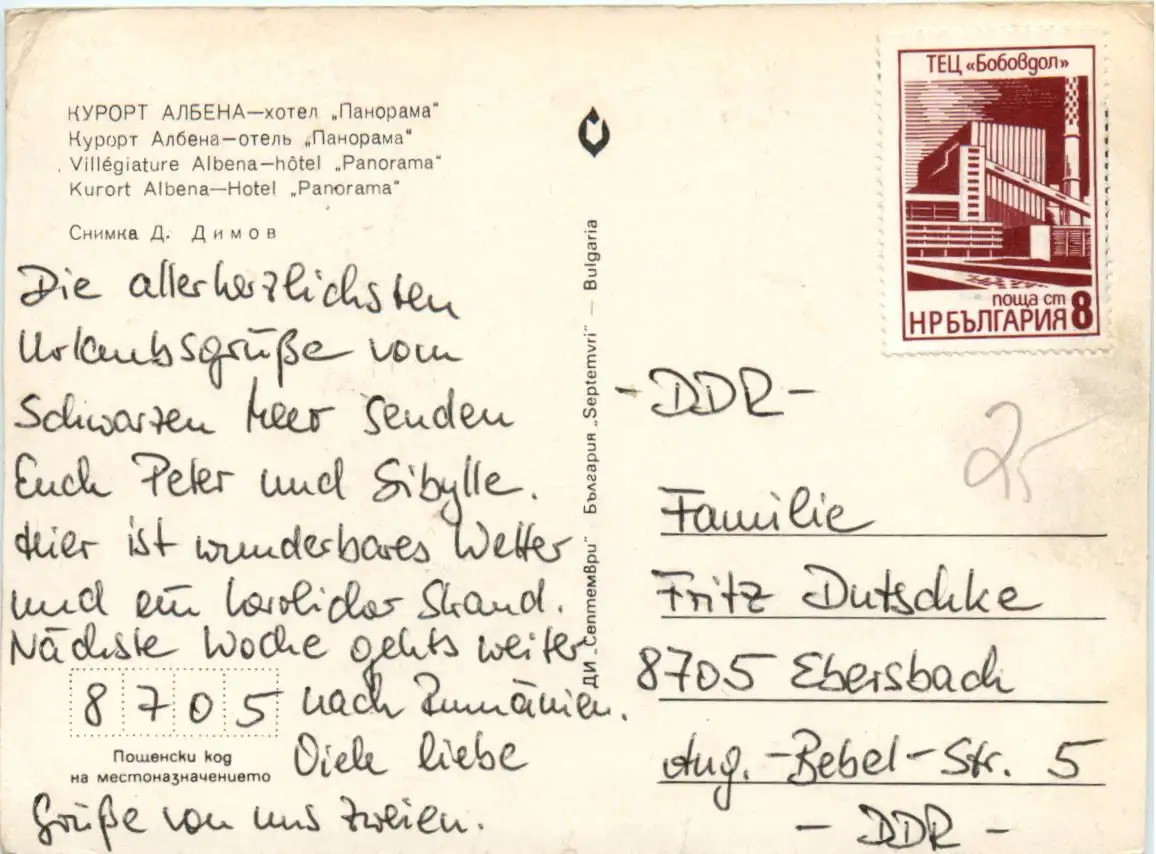 КУРОРТ АЛБЕНА—хотел „Панорама“
Курорт Албена—отель „Панорама“
Villégiature Albena—hôtel „Panorama“
Kurort Albena—Hotel „Panorama“
Снимка Д. Димов
Die allerherzlichsten
Urlaubsgrüße vom
Schwarzen Meer senden
Euch Peter und Sibylle.
Hier ist wunderbares Wetter
und ein herrlicher Strand.
Nächste Woche gehts weiter
nach Rumänien.
Viele liebe
Grüße von uns zweien.
8705
Пощенски код
на местоназначението
ДИ „Септември“ България „Septemvri“ — Bulgaria
ТЕЦ «Бобовдол»
поща ст 8
НР БЪЛГАРИЯ
- DDR -
25
Familie
Fritz Dutschke
8705 Ebersbach
Aug.-Bebel-Str. 5
- DDR -